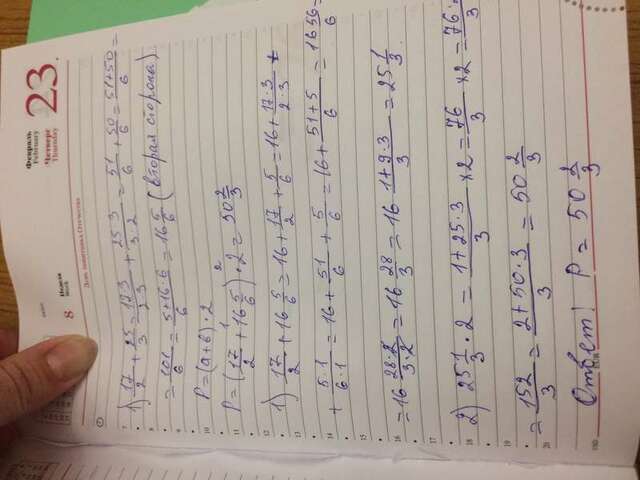 Февраль
February
23
Четверг
Thursday
8
Неделя
Week
День защитника Отечества
1) 17/2 + 25/3 = 17·3/2·3 + 25·3/3·2 = 51/6 + 50/6 = 51+50/6 =
= 101/6 = 5+16·6/6 = 16 5/6 (вторая сторона)
P = (a+b)·2
P = (17/2 + 16 5/6)·2 = 50 2/3
1) 17/2 + 16 5/6 = 16 + 17/2 + 5/6 = 16 + 17·3/2·3 +
+ 5·1/6·1 = 16 + 51/6 + 5/6 = 16 + 51+5/6 = 16 56/6 =
= 16 28·2/3·2 = 16 28/3 = 16 1+9·3/3 = 25 1/3.
2) 25 1/3 · 2 = 1+25·3/3 × 2 = 76/3 × 2 = 76·2/3
= 152/3 = 2+50·3/3 = 50 2/3
Ответ: P = 50 2/3
7
8
9
10
11
12
13
14
15
16
17
18
19
20